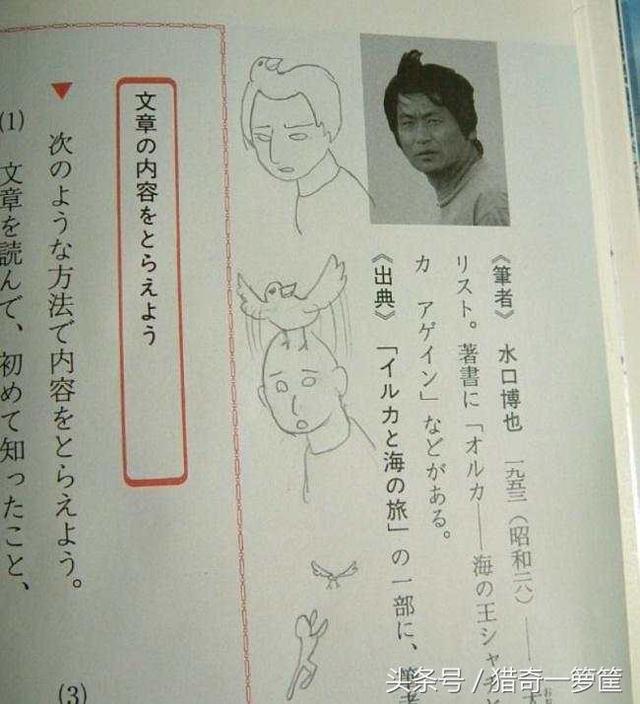 《筆者》 水口博也 一九五三(昭和二八)――
リスト。著書に「オルカ――海の王シャチと
カ アゲイン」などがある。
《出典》 「イルカと海の旅」の一部に、筆
文章の内容をとらえよう
▼ 次のような方法で内容をとらえよう。
(3)
(1) 文章を読んで、初めて知ったこと、
头条号 / 猎奇一箩筐